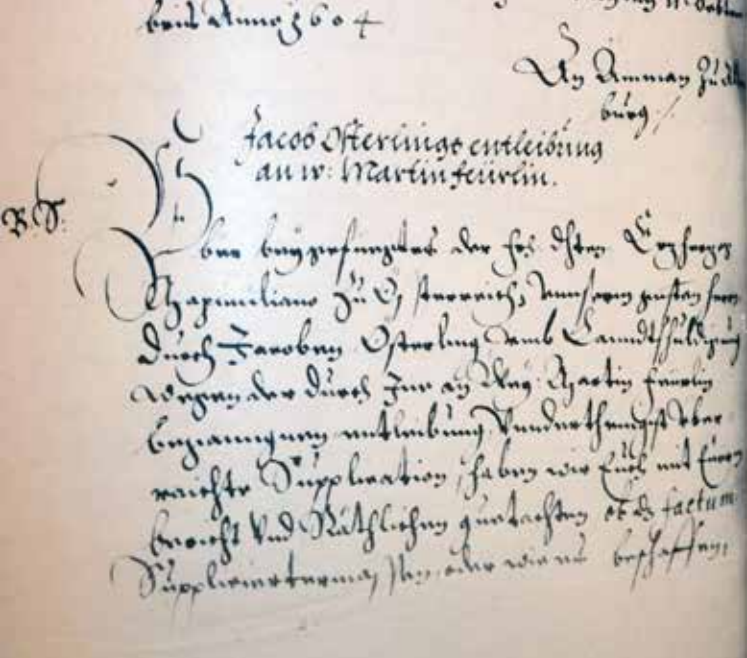 bris Anno 1604
An Amman zu
burg /.
Jacob Österlings entleibung
an w: Martin feürlin.
B. S.
Über beÿgefuegtes der frl. dhten Erzherzog
Maximiliano zu Össterreich, unnserm gnsten herrn
durch Jacoben Österling umb Lanndtshuldigung
wegen der durch Ine an Weÿ: Martin feürlin
begangnen entleibung Underthenigst über
raichte Supplication, haben wir Euch mit Eurem
bericht Und Räthlichen guetachten ob dz factum
Supplicirtermassen, oder wie es beschaffen,